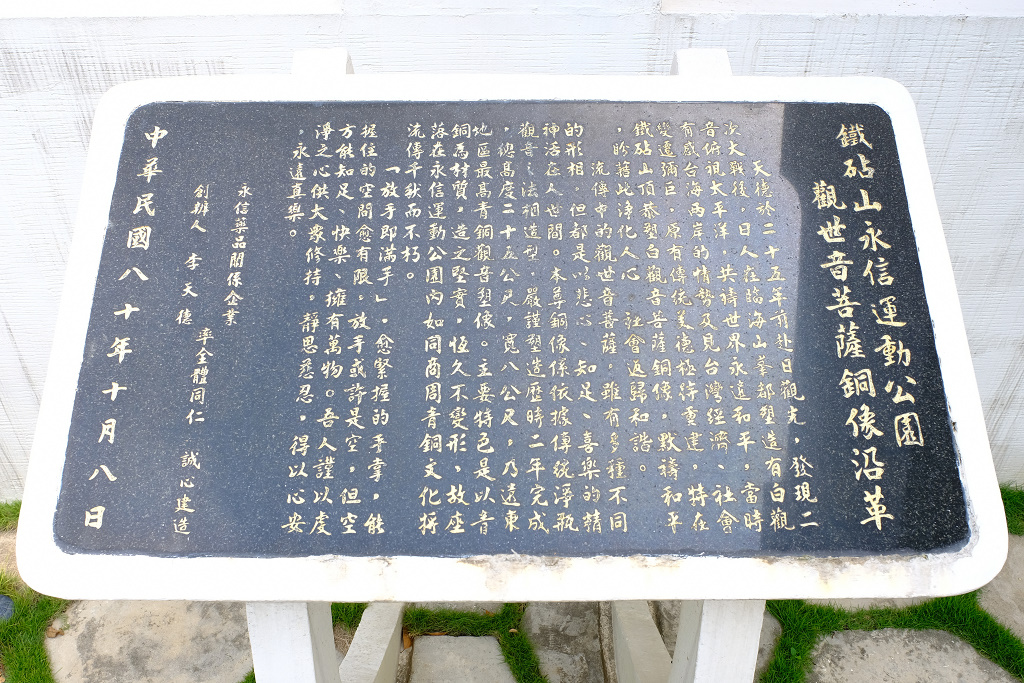 鐵砧山永信運動公園
觀世音菩薩銅像沿革
天德於二十五年前赴日觀光，發現二
次大戰後，日人在臨海山峯都塑造有白觀
音俯視太平洋，共禱世界永遠和平，當時
有感台海兩岸的情勢及見台灣經濟、社會
變遷彌巨，原有傳統美德極待重建，特在
鐵砧山頂恭塑白觀音菩薩銅像，默禱和平
，盼藉此淨化人心，社會返歸和諧。
流傳中的觀世音菩薩。雖有多種不同
的形相，但都是以悲心、知足、喜樂的精
神活在人世間。本尊銅像係依據傳統淨瓶
觀音之法相造型，嚴謹塑造歷時二年完成
，總高度二十五公尺，寬八公尺，乃遠東
地區最高青銅觀音塑像。主要特色是以青
銅為材質，造之堅實，恆久不變形，故座
落在永信運動公園內如同商周青銅文化摒
流傳千秋而不朽。
「一放手即滿手」，愈緊握的手掌，能
握住的空間愈有限。放手或許是空，但空
方能知足、快樂、擁有萬物。吾人謹以虔
淨之心供大眾修持。靜思悉忍，得以心安
。永遠真樂。
永信藥品關係企業
創辦人 李天德 率全體同仁 誠心建造
中華民國八十年十月八日